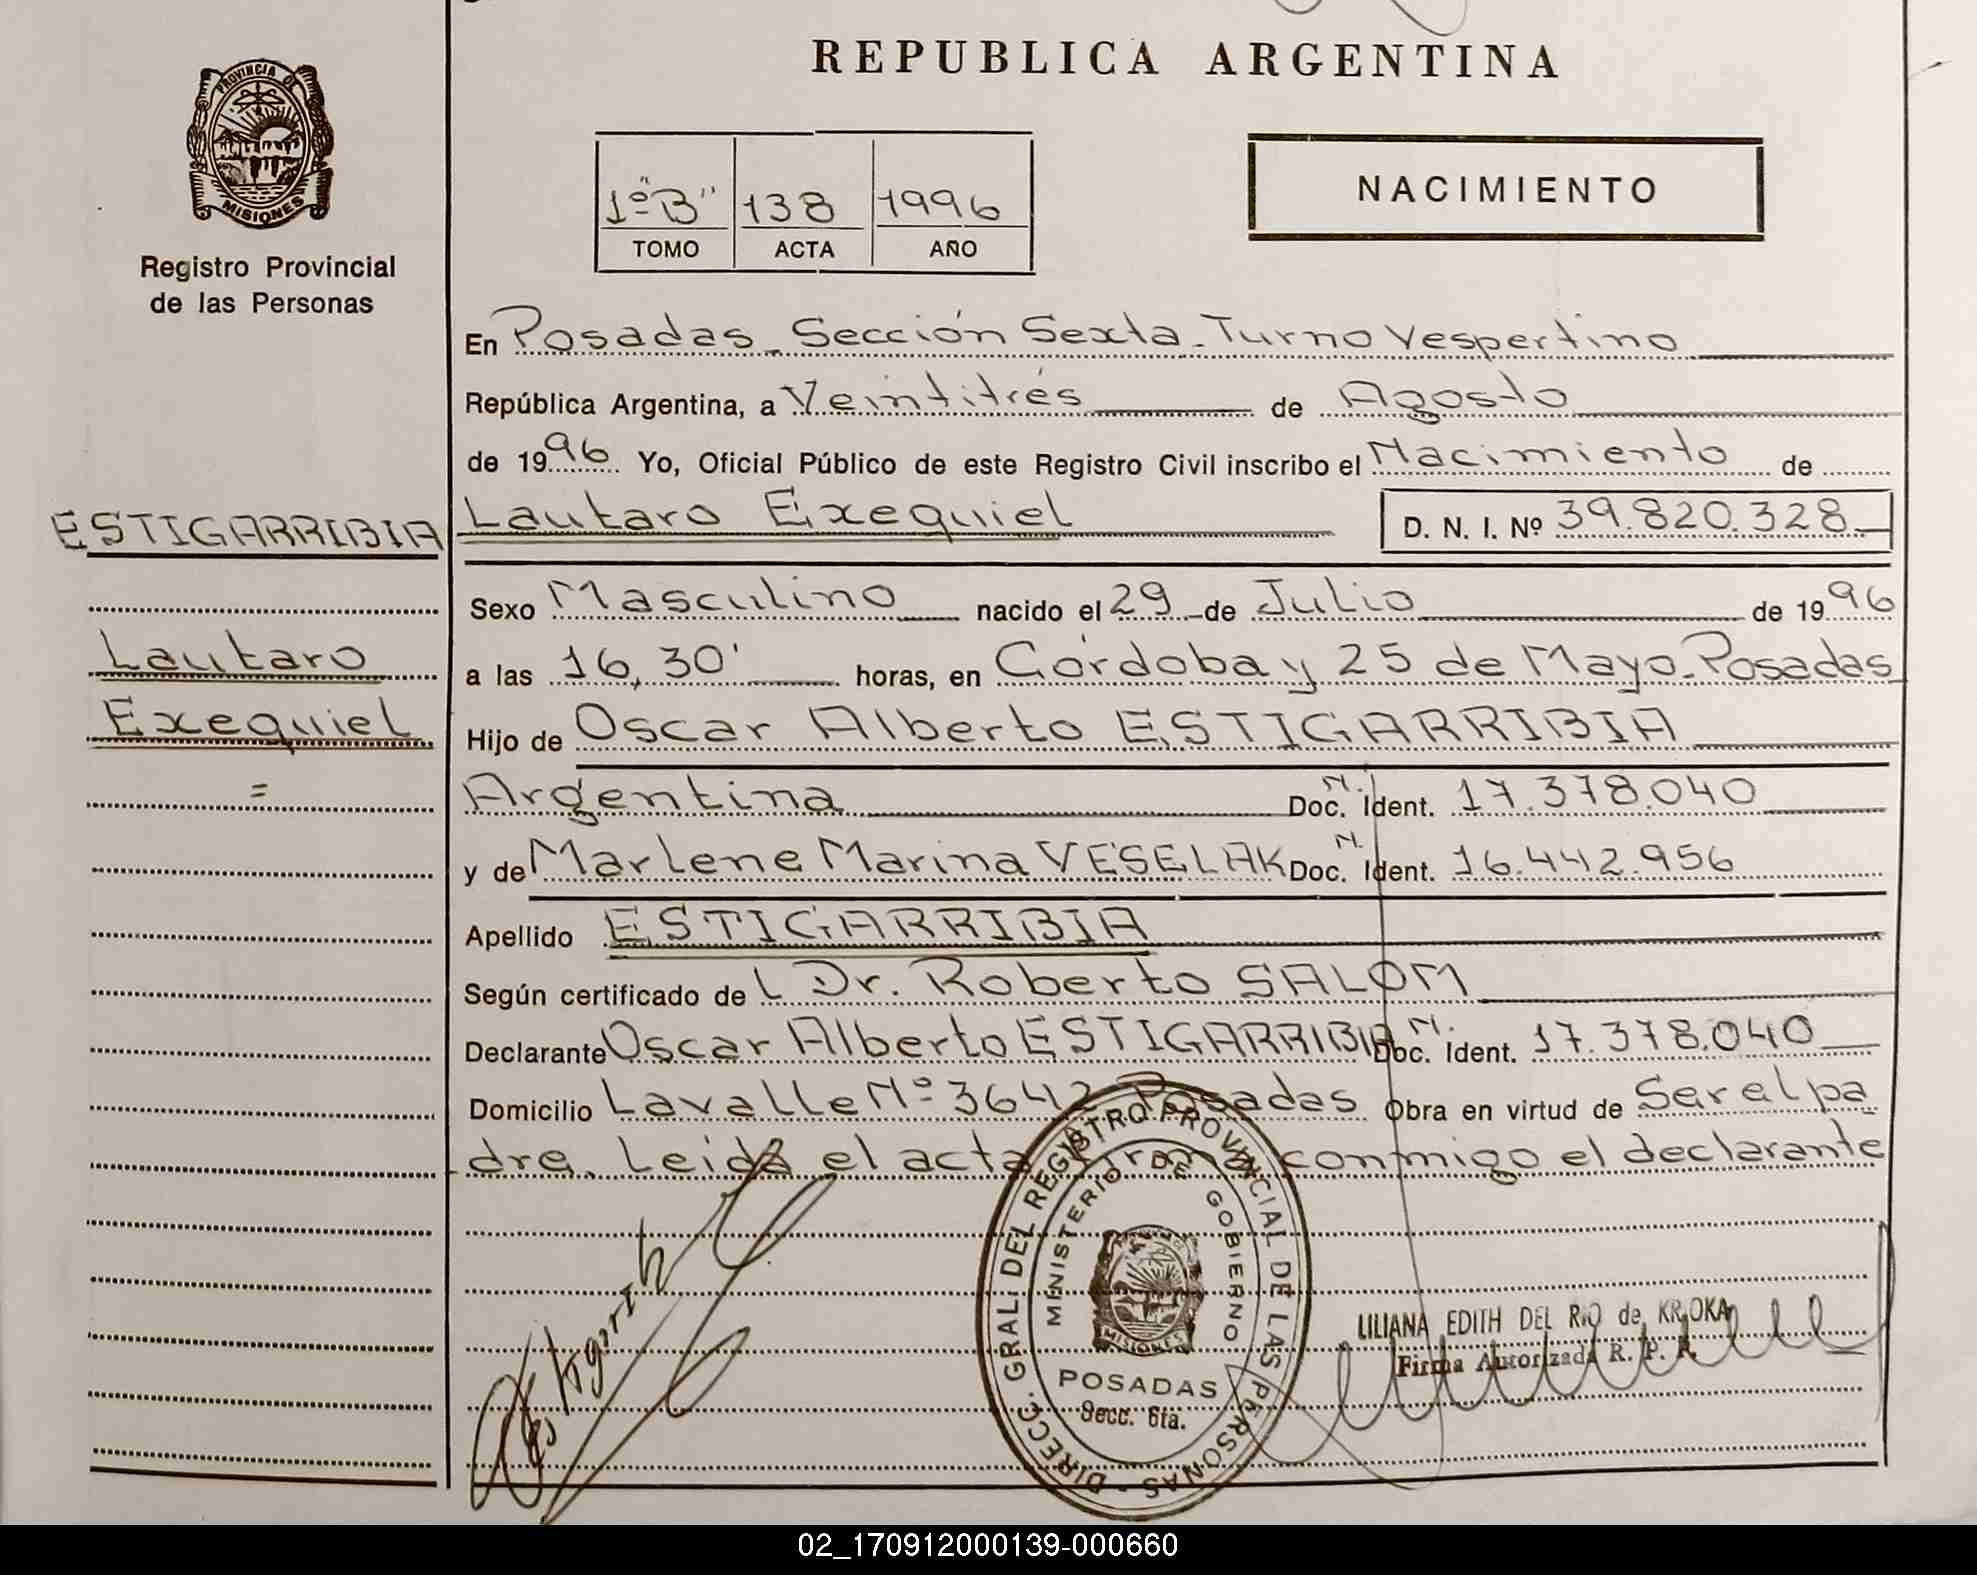 REPUBLICA ARGENTINA
PROVINCIA DE
MISIONES
Registro Provincial
de las Personas
1º "B" 138 1996
TOMO ACTA AÑO
NACIMIENTO
En Posadas - Sección Sexta - Turno Vespertino
República Argentina, a Veintitrés de Agosto
de 1996 Yo, Oficial Público de este Registro Civil inscribo el Nacimiento de
ESTIGARRIBIA
Lautaro
Exequiel
=
Lautaro Exequiel D. N. I. Nº 39.820.328
Sexo Masculino nacido el 29 de Julio de 1996
a las 16,30' horas, en Córdoba y 25 de Mayo - Posadas
Hijo de Oscar Alberto ESTIGARRIBIA
Argentina Doc. N. Ident. 17.378.040
y de Marlene Marina VESELAK Doc. N. Ident. 16.442.956
Apellido ESTIGARRIBIA
Según certificado de l Dr. Roberto SALOM
Declarante Oscar Alberto ESTIGARRIBIA Doc. N. Ident. 17.378.040
Domicilio Lavalle Nº 3642 Posadas Obra en virtud de Ser el pa
dre. Leida el acta firma conmigo el declarante
DIRECC. GRAL. DEL REGISTRO PROVINCIAL DE LAS PERSONAS
MINISTERIO DE GOBIERNO
MISIONES
POSADAS
Secc. 6ta.
LILIANA EDITH DEL RIO de KRIOKA
Firma Autorizada R. P. P.
02_170912000139-000660